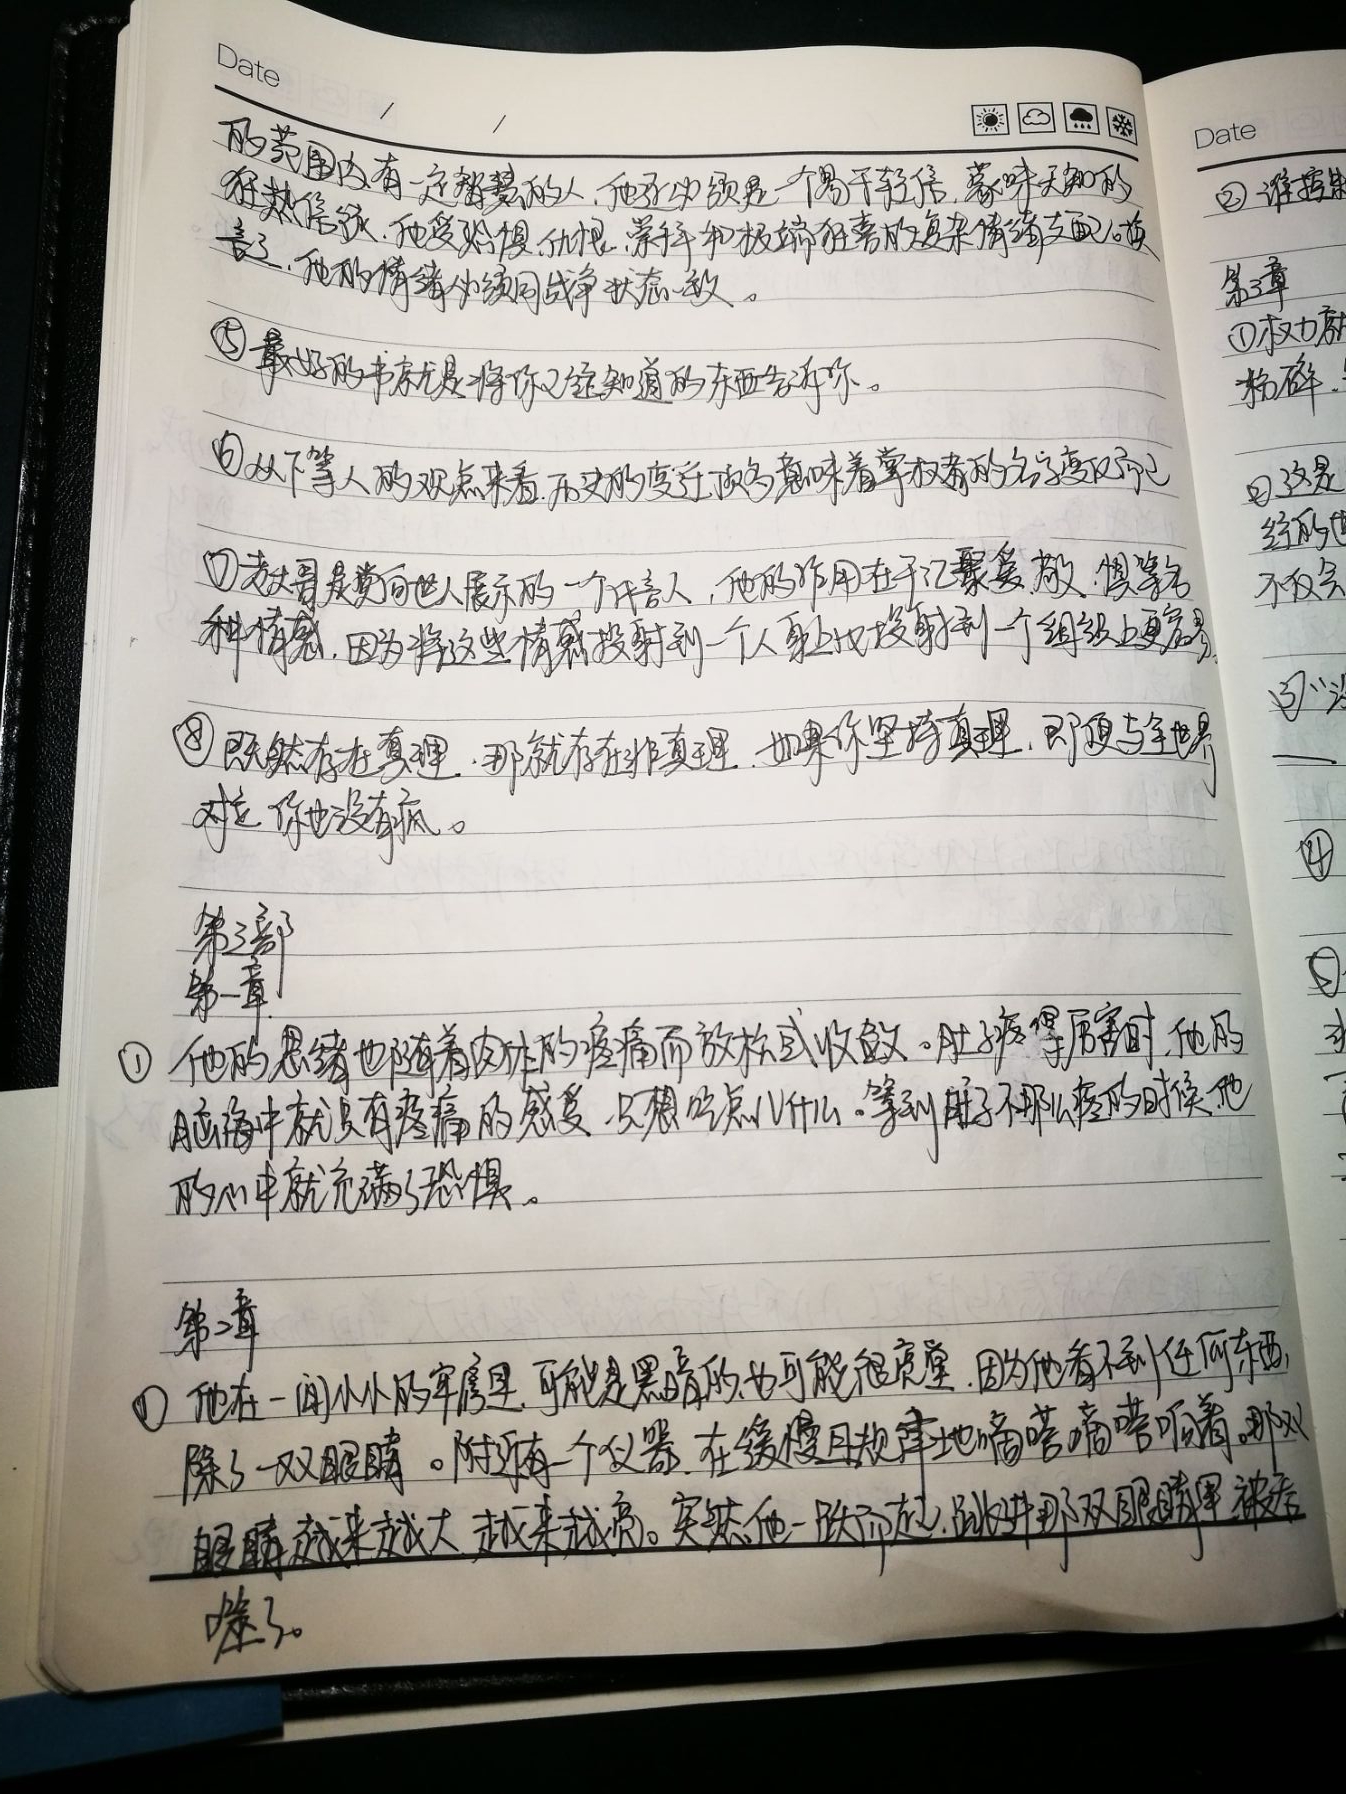 Date / /
的范围内有一定智慧的人，他还必须是一个易于轻信，蒙昧无知的
狂热信徒，他受恐惧，仇恨，崇拜和极端狂喜的复杂情绪支配。换
言之，他的情绪必须同战争状态一致。
⑤最好的书就是将你已经知道的东西告诉你。
⑥从下等人的观点来看，历史的变迁顶多意味着掌权者的名字变化而已
⑦老大哥是党向世人展示的一个代言人，他的作用在于汇聚爱，敬，惧等各
种情感，因为将这些情感投射到一个人身上比投射到一个组织上更容易。
⑧既然存在真理，那就存在非真理，如果你坚持真理，即便与全世界
对立 你也没有疯。
第三部
第一章
① 他的思绪也随着肉体的疼痛而放松或收敛。肚子疼得厉害时，他的
脑海中就只有疼痛的感受，只想吃点儿什么。等到肚子不那么疼的时候他
的心中就充满了恐惧。
第二章
① 他在一间小小的牢房里，可能是黑暗的，也可能很亮堂，因为他看不到任何东西，
除了一双眼睛。附近有一个仪器，在缓慢且规律地嘀嗒嘀嗒响着。那双
眼睛越来越大 越来越亮。突然他一跃而起，跳进那双眼睛里，被吞
噬了。
Date
② 谁控制
第三章
①权力
粉碎，
②这是
不仅会
③“没
④
⑤